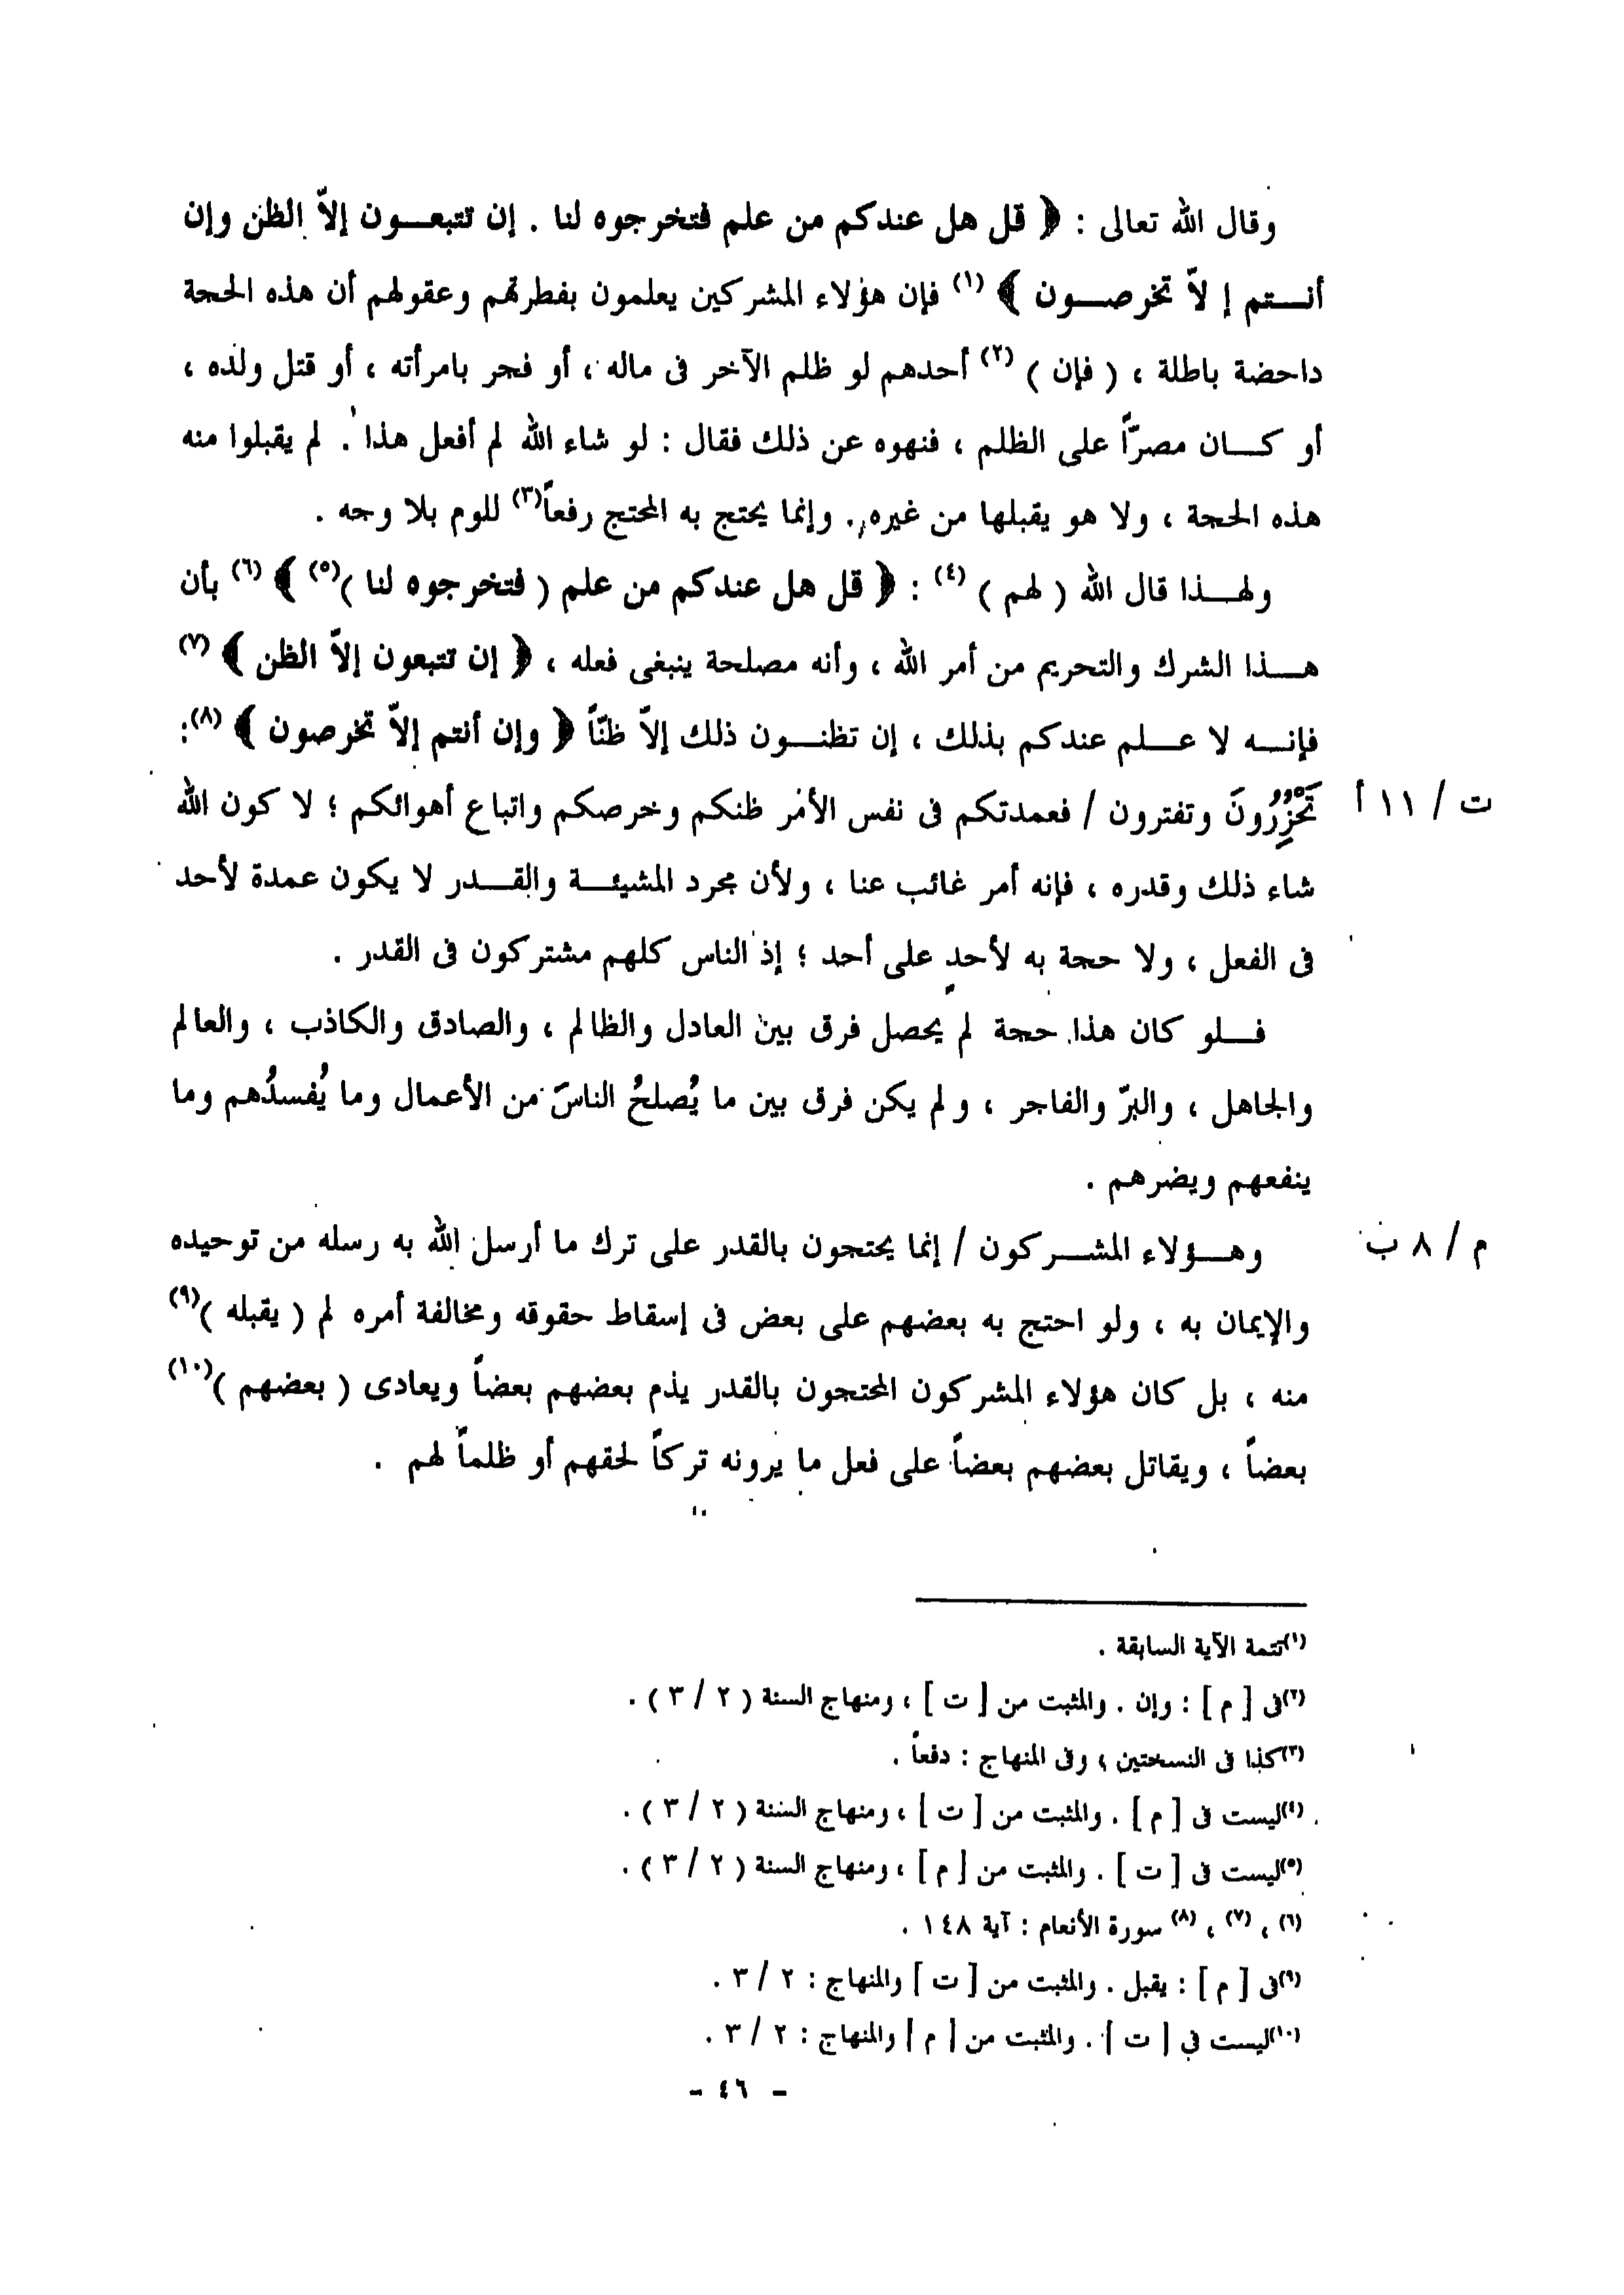 وقال الله تعالى : ﴿ قل هل عندكم من علم فتخرجوه لنا . إن تتبعــون إلاّ الظن وإن
أنــتم إ لاّ تخرصــون ﴾ (١) فإن هؤلاء المشركين يعلمون بفطرتهم وعقولهم أن هذه الحجة
داحضة باطلة ، ( فإن ) (٢) أحدهم لو ظلم الآخر فى ماله ، أو فجر بامرأته ، أو قتل ولده ،
أو كــان مصرّاً على الظلم ، فنهوه عن ذلك فقال : لو شاء الله لم أفعل هذا . لم يقبلوا منه
هذه الحجة ، ولا هو يقبلها من غيره . وإنما يحتج به المحتج رفعاً(٣) للوم بلا وجه .
ولهــذا قال الله ( لهم ) (٤) : ﴿ قل هل عندكم من علم ( فتخرجوه لنا )(٥) ﴾ (٦) بأن
هــذا الشرك والتحريم من أمر الله ، وأنه مصلحة ينبغى فعله ، ﴿ إن تتبعون إلاّ الظن ﴾ (٧)
فإنــه لا عــلم عندكم بذلك ، إن تظنــون ذلك إلاّ ظنّاً ﴿ وإن أنتم إلاّ تخرصون ﴾ (٨):
تَحْزِرُونَ وتفترون / فعمدتكم فى نفس الأمر ظنكم وخرصكم واتباع أهوائكم ؛ لا كون الله
ت / ١١ أ
شاء ذلك وقدره ، فإنه أمر غائب عنا ، ولأن مجرد المشيئــة والقــدر لا يكون عمدة لأحد
فى الفعل ، ولا حجة به لأحدٍ على أحد ؛ إذ الناس كلهم مشتركون فى القدر .
فــلو كان هذا حجة لم يحصل فرق بين العادل والظالم ، والصادق والكاذب ، والعالم
والجاهل ، والبرّ والفاجر ، ولم يكن فرق بين ما يُصلحُ الناسَ من الأعمال وما يُفسدُهم وما
ينفعهم ويضرهم .
وهــؤلاء المشــركون / إنما يحتجون بالقدر على ترك ما أرسل الله به رسله من توحيده
م / ٨ ب
والإيمان به ، ولو احتج به بعضهم على بعض فى إسقاط حقوقه ومخالفة أمره لم ( يقبله )(٩)
منه ، بل كان هؤلاء المشركون المحتجون بالقدر يذم بعضهم بعضاً ويعادى ( بعضهم )(١٠)
بعضاً ، ويقاتل بعضهم بعضاً على فعل ما يرونه تركاً لحقهم أو ظلماً لهم .
(١)تتمة الآية السابقة .
(٢)فى [ م ] : وإن . والمثبت من [ ت ] ، ومنهاج السنة ( ٢ / ٣ ) .
(٣)كذا فى النسختين ، وفى المنهاج : دفعاً .
(٤)ليست فى [ م ] . والمثبت من [ ت ] ، ومنهاج السنة ( ٢ / ٣ ) .
(٥)ليست فى [ ت ] . والمثبت من [ م ] ، ومنهاج السنة ( ٢ / ٣ ) .
(٦) ، (٧) ، (٨) سورة الأنعام : آية ١٤٨ .
(٩)فى [ م ] : يقبل . والمثبت من [ ت ] والمنهاج : ٢ / ٣ .
(١٠)ليست في [ ت ] . والمثبت من [ م ] والمنهاج : ٢ / ٣ .
- ٤٦ -